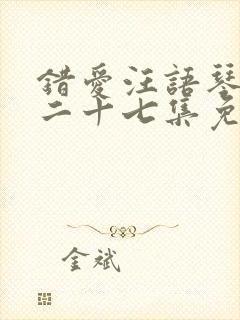 錯愛汪語琴
二十七集免
金斌